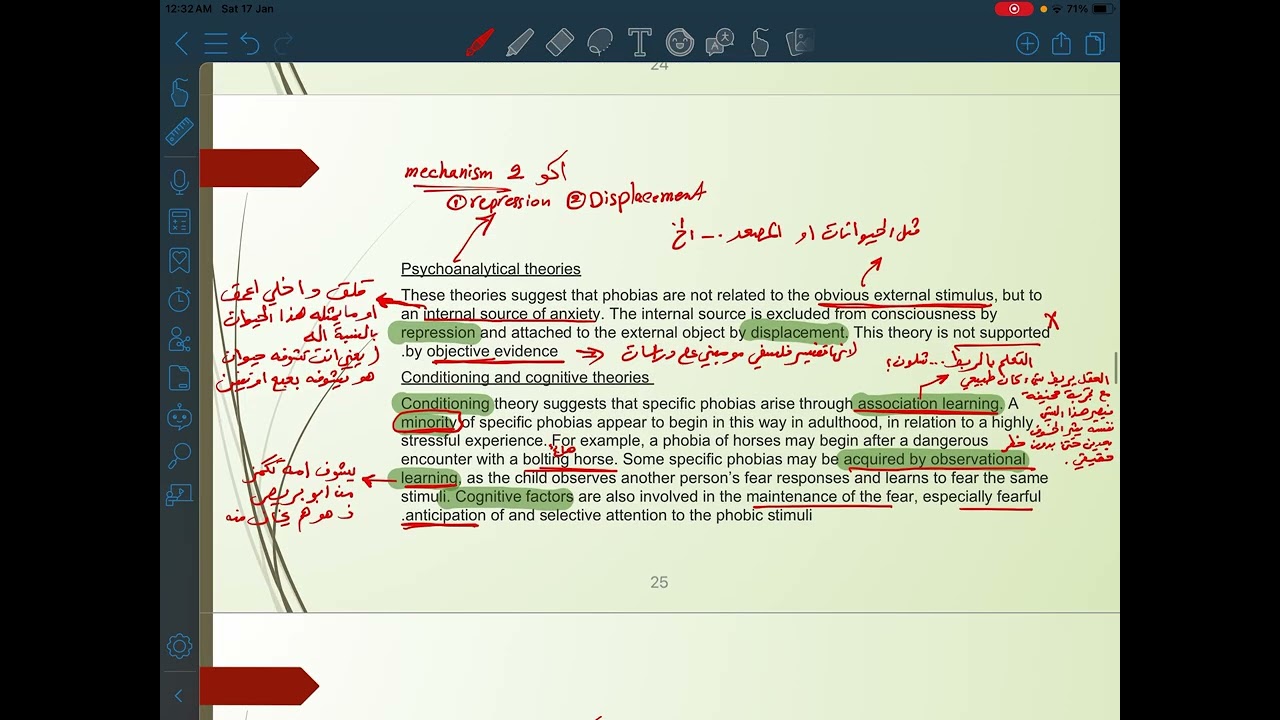 12:32AM Sat 17 Jan
71%
24
mechanism 2 اكو
① repression ② Displacement
مثل الحيوانات او المصعد ... الخ
Psychoanalytical theories
These theories suggest that phobias are not related to the obvious external stimulus, but to
an internal source of anxiety. The internal source is excluded from consciousness by
repression and attached to the external object by displacement. This theory is not supported
.by objective evidence
قلق داخلي اعمق
او ما يمثله هذا الحيوان
بالنسبة اله
( يعني انت تشوفه حيوان
هو يشوفه
X
لانها تفسير فلسفي مو مبني على دراسات
Conditioning and cognitive theories
التعلم بالربط ... شلون؟
العقل يربط شيء كان طبيعي
مع تجربة مخيفة
فيصير هذا الشي
نفسه يثير الخوف
بعدين حتى بدون خطر
حقيقي
Conditioning theory suggests that specific phobias arise through association learning. A
minority of specific phobias appear to begin in this way in adulthood, in relation to a highly
stressful experience. For example, a phobia of horses may begin after a dangerous
encounter with a bolting horse. Some specific phobias may be acquired by observational
learning, as the child observes another person's fear responses and learns to fear the same
stimuli. Cognitive factors are also involved in the maintenance of the fear, especially fearful
.anticipation of and selective attention to the phobic stimuli
يشوف امه تكمز
من ابو بريص
فـ هو هم يخاف منه
25